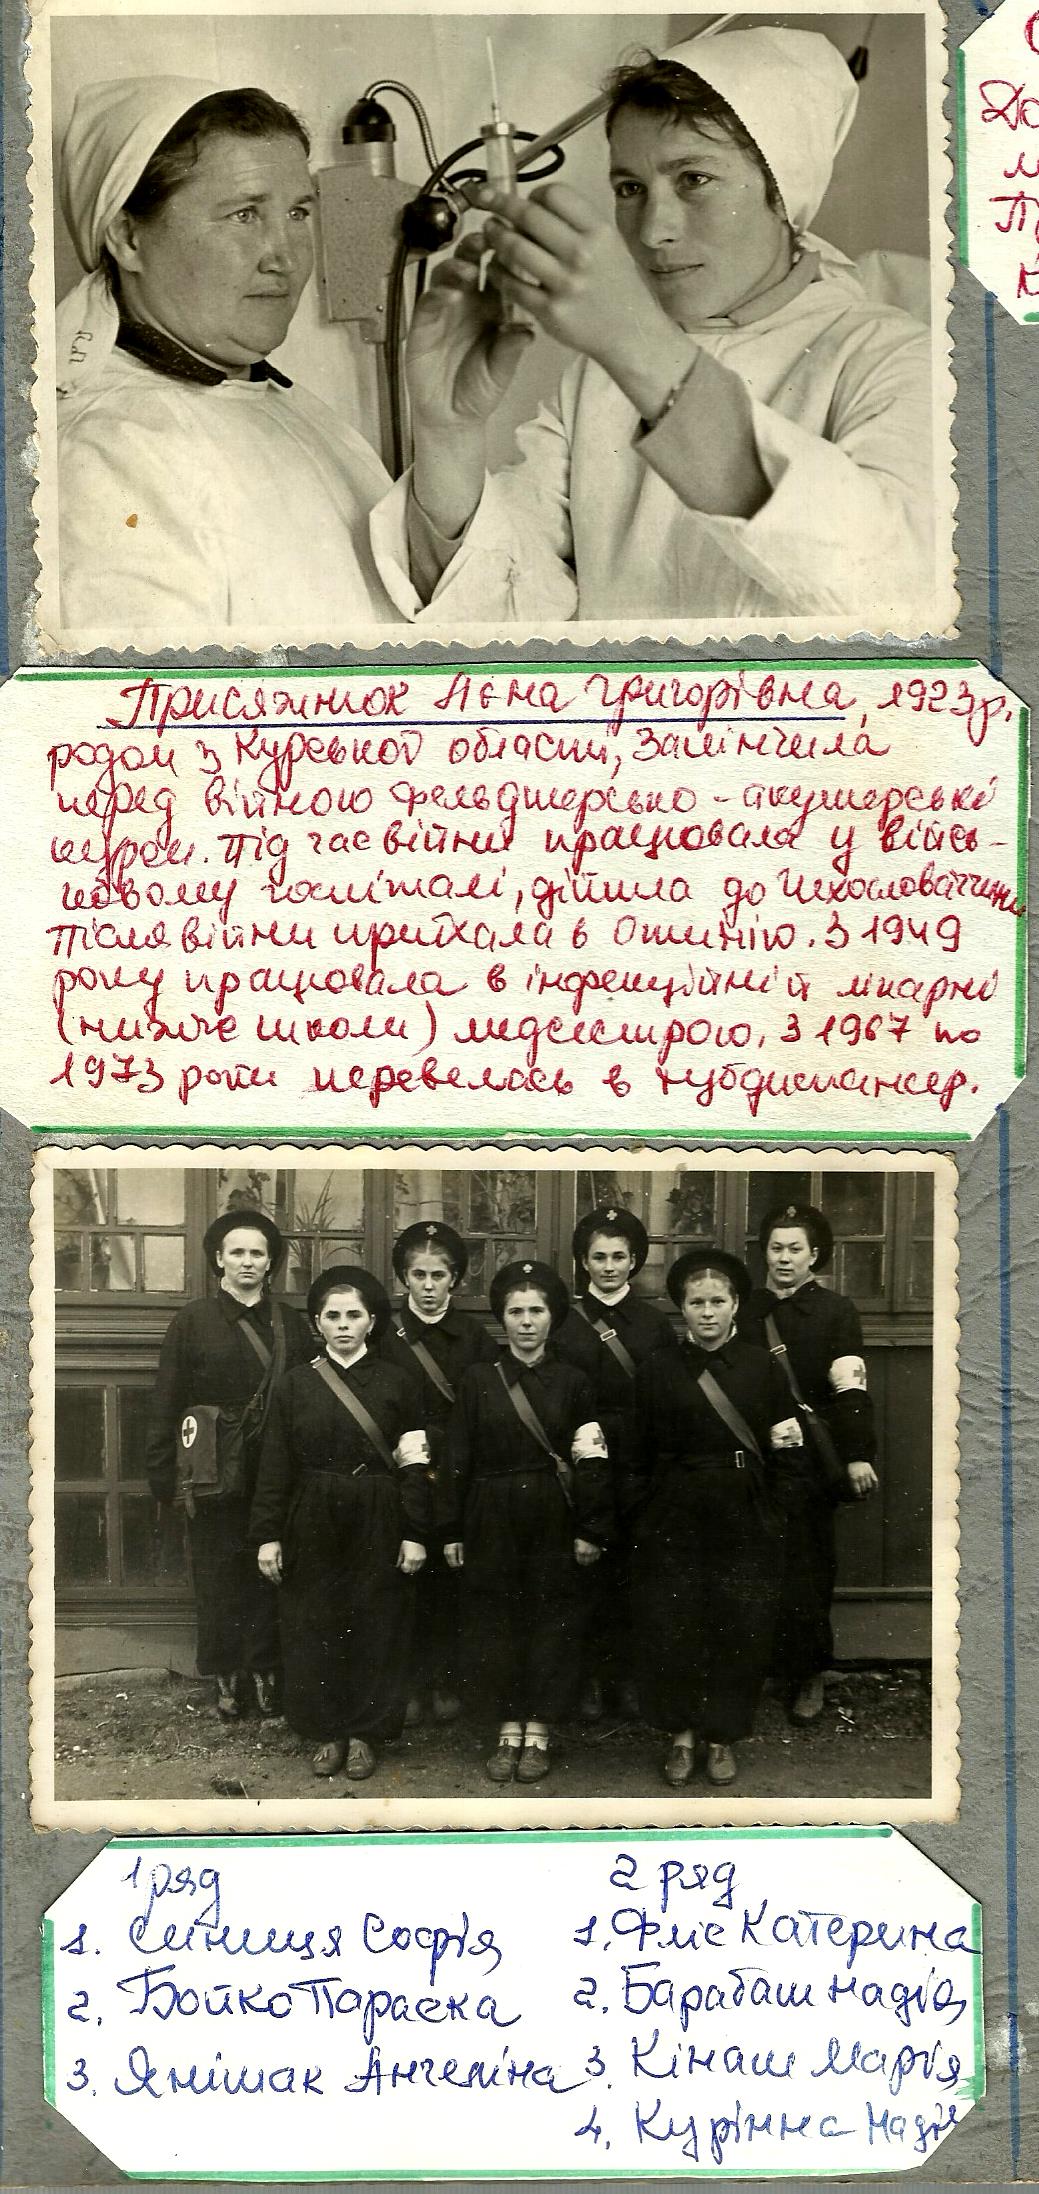 До
м
Присяжнюк Анна Григорівна, 1923р.
родом з Курської області, Закінчила
перед війною фельдшерсько-акушерські
курси. Під час війни працювала у війсь-
ковому госпіталі, дійшла до Чехословаччини
Після війни приїхала в Отинію. З 1949
року працювала в інфекційній лікарні
(нижче школи) медсестрою. З 1967 по
1973 роки перевелась в тубдиспансер.
1 ряд
1. Синиця Софія
2. Бойко Параска
3. Янішак Ангеліна
2 ряд
1. Фліс Катерина
2. Барабаш Надія
3. Кінаш Марія
4. Курінна Надія